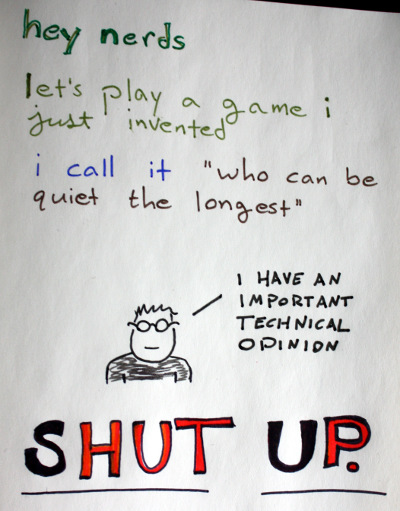 hey nerds
let's play a game i
just invented
i call it "who can be
quiet the longest"
I HAVE AN
IMPORTANT
TECHNICAL
OPINION
SHUT UP.